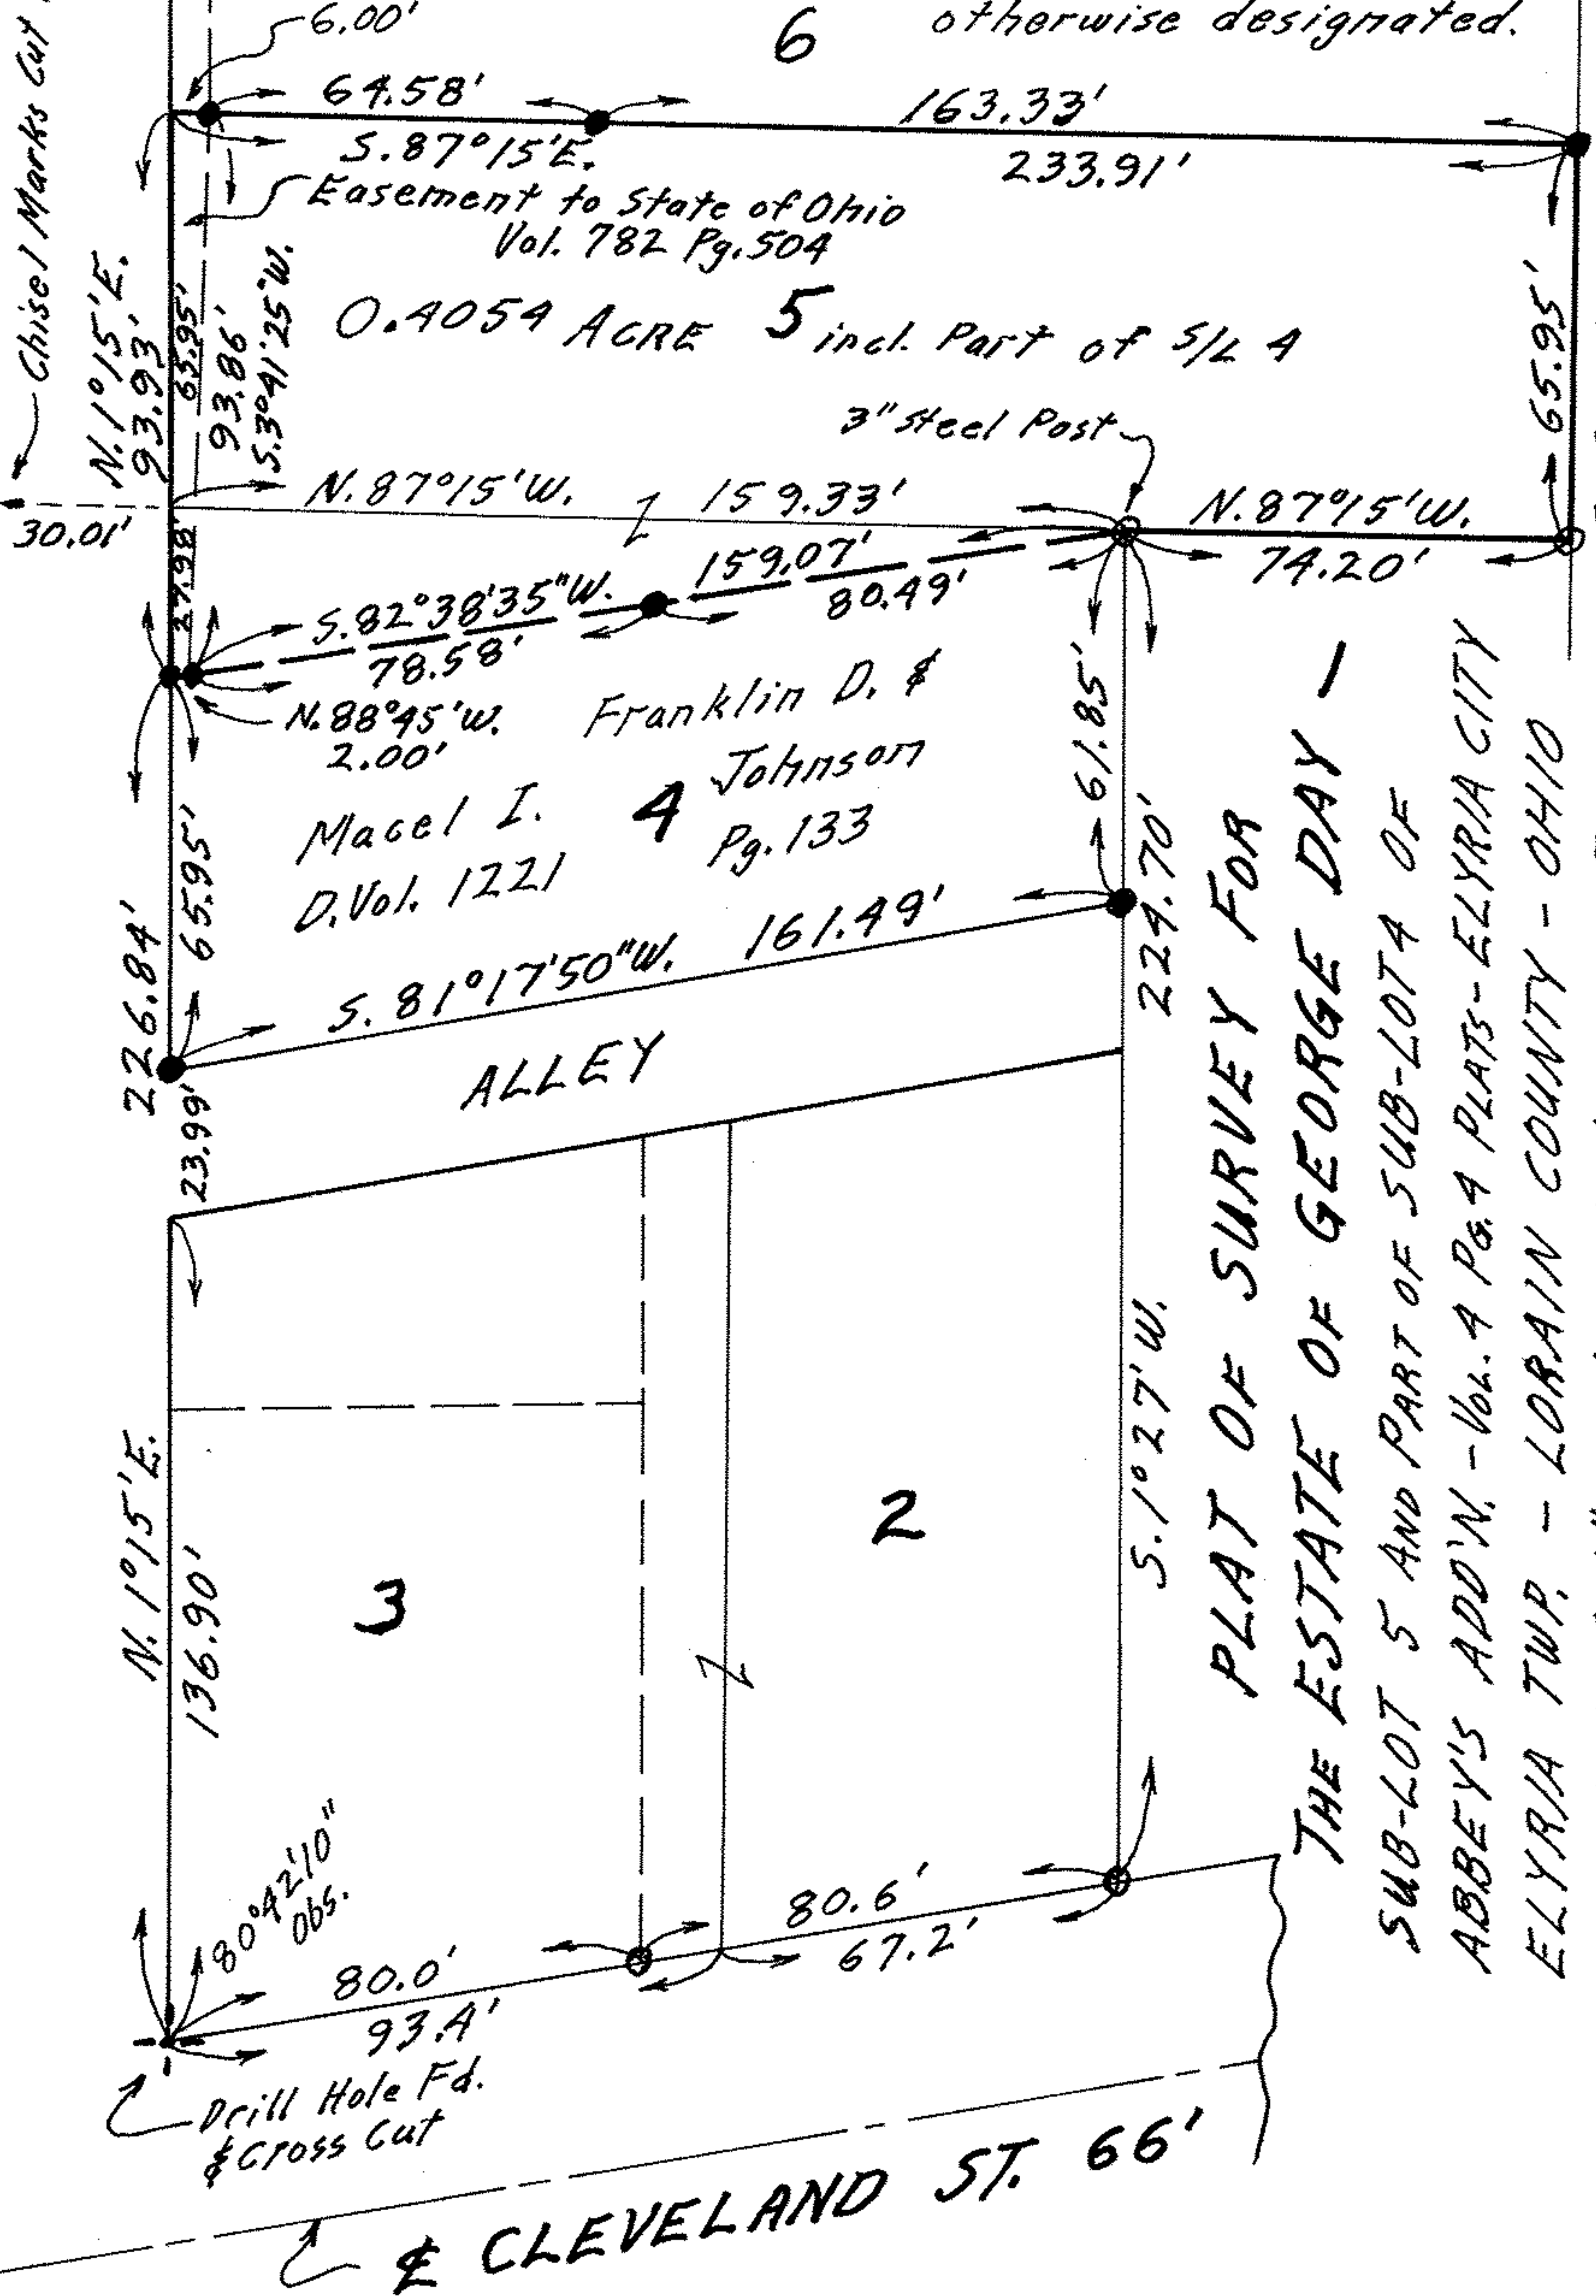 6.00'
6
otherwise designated.
Chisel Marks Cut
64.58'
163.33'
S.87°15'E.
233.91'
Easement to State of Ohio
Vol. 782 Pg.504
N.1°15'E.
93.93'
65.95'
93.86'
S.3°41'25"W.
0.4054 ACRE 5 incl. Part of S/L 4
65.95'
3" Steel Post
30.01'
N.87°15'W.
159.33'
N.87°15'W.
74.20'
27.98'
159.07'
S.82°38'35"W.
80.49'
78.58'
N.88°45'W.
2.00'
Franklin D. &
Macel I.
4
Johnson
D.Vol. 1221
Pg.133
61.85'
224.70'
226.84'
65.95'
S. 81°17'50"W.
161.49'
ALLEY
23.99'
S.1°27'W.
N.1°15'E.
136.90'
3
2
80°42'10"
Obs.
80.0'
93.4'
80.6'
67.2'
Drill Hole Fd.
& Cross Cut
℄ CLEVELAND ST. 66'
PLAT OF SURVEY FOR
THE ESTATE OF GEORGE DAY -
SUB-LOT 5 AND PART OF SUB-LOT 4 OF
ABBEY'S ADD'N. - VOL. 4 PG. 4 PLATS - ELYRIA CITY
ELYRIA TWP. - LORAIN COUNTY - OHIO